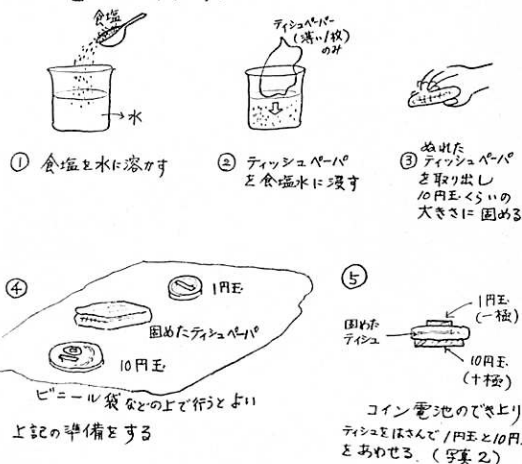 食塩
水
① 食塩を水に溶かす
ティシュペーパー
(薄い1枚)
のみ
② ティッシュペーパ
を食塩水に浸す
③ ぬれた
ティッシュペーパ
を取り出し
10円玉くらいの
大きさに固める
④
1円玉
固めたティシュペーパ
10円玉
ビニール袋などの上で行うとよい
上記の準備をする
⑤
1円玉
(一極)
固めた
ティシュ
10円玉
(十極)
コイン電池のでき上り
ティシュをはさんで1円玉と10円
をあわせる。(写真2)